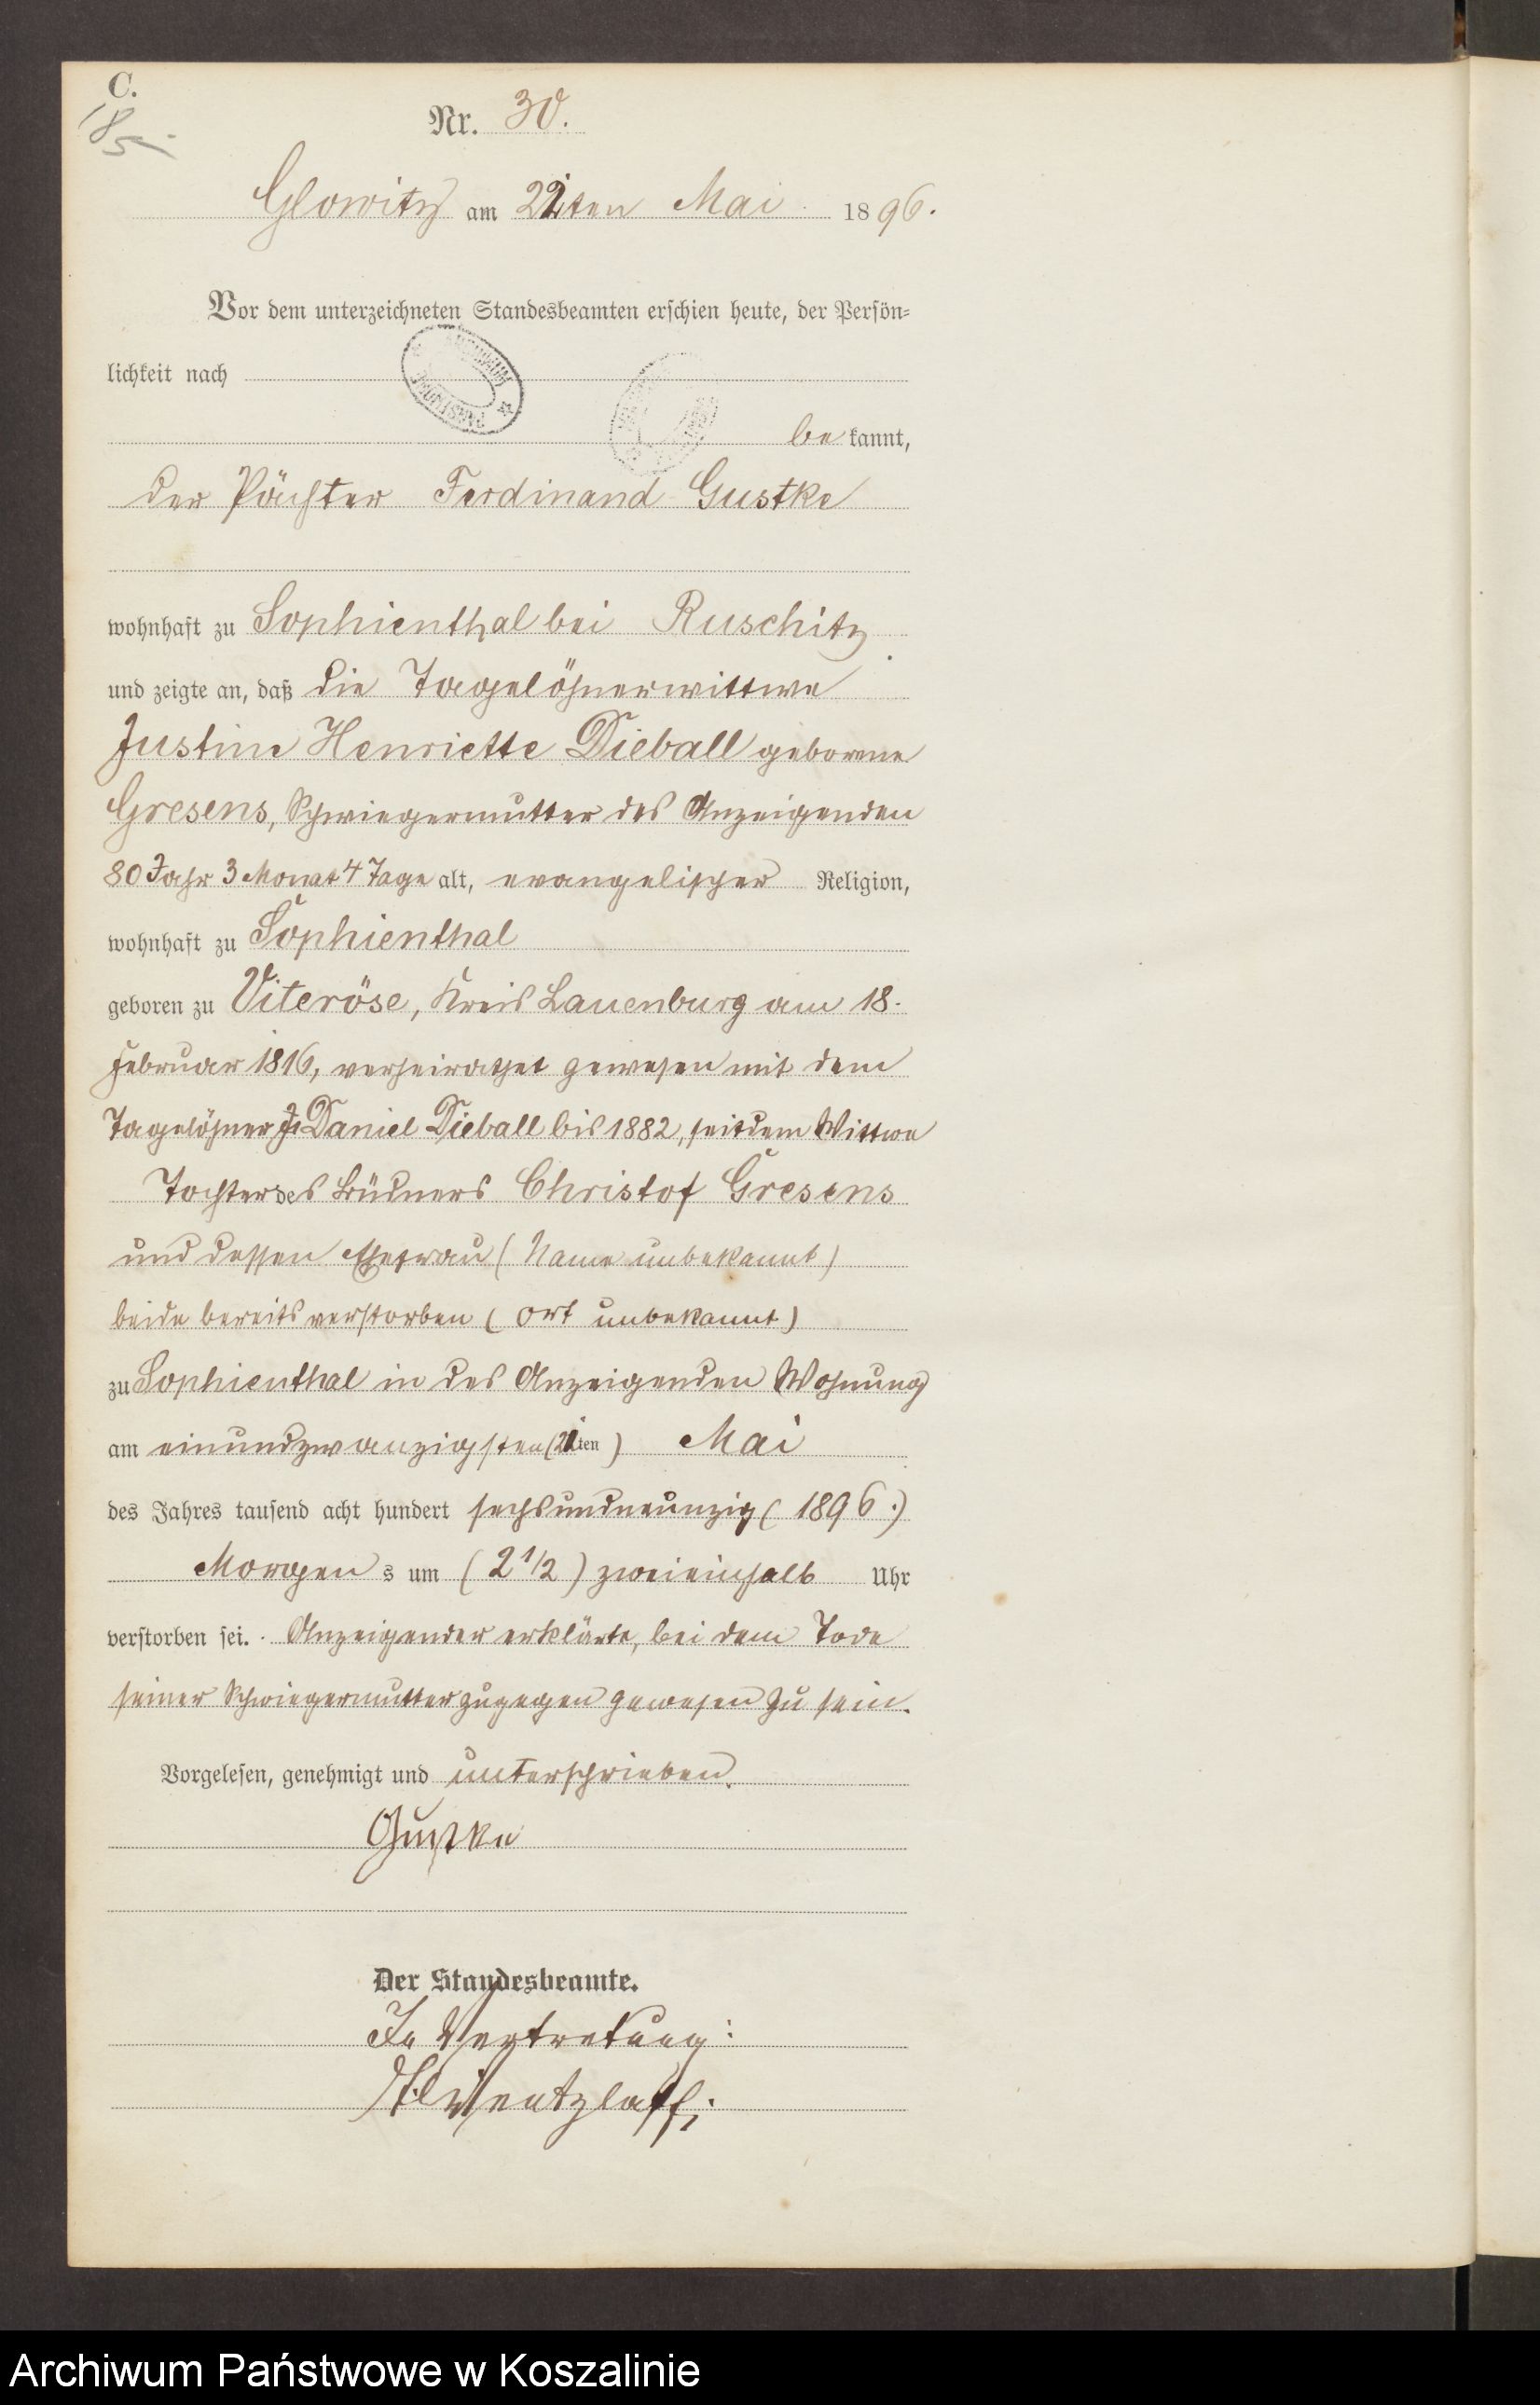 C.
Nr. 30.
Glowitz am 22ten Mai 1896.
Vor dem unterzeichneten Standesbeamten erschien heute, der Persön-
lichkeit nach
be kannt,
der Pächter Ferdinand Gustke
wohnhaft zu Sophienthal bei Ruschitz
und zeigte an, daß die Tagelöhnerwittwe
Justine Henriette Dieball geborene
Gresens, Schwiegermutter des Anzeigenden
80 Jahr 3 Monat 4 Tage alt, evangelischer Religion,
wohnhaft zu Sophienthal
geboren zu Viteröse, Kreis Lauenburg am 18.
Februar 1816, verheirathet gewesen mit dem
Tagelöhner Daniel Dieball bis 1882, seitdem Wittwe
Tochter des Büdners Christof Gresens
und dessen Ehefrau (Name unbekannt)
beide bereits verstorben (Ort unbekannt)
zu Sophienthal in des Anzeigenden Wohnung
am einundzwanzigsten (21ten) Mai
des Jahres tausend acht hundert sechsundneunzig (1896.)
Morgen s um (2 1/2) zweieinhalb Uhr
verstorben sei. Anzeigender erklärte, bei dem Tode
seiner Schwiegermutter zugegen gewesen zu sein.
Vorgelesen, genehmigt und unterschrieben.
Gustke
Der Standesbeamte.
In Vertretung:
Wentzlaff.
Archiwum Państwowe w Koszalinie